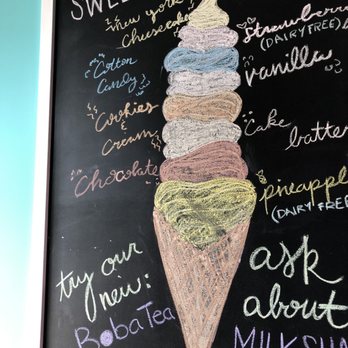 SWE
new york
cheesecake
Strawberr
(DAIRY FREE)
Cotton
Candy
vanilla
Cookies
&
Cream
Cake
batter
Chocolate
pineapple
(DAIRY FREE
try our
new:
Boba Tea
ask
about
MILKSHA